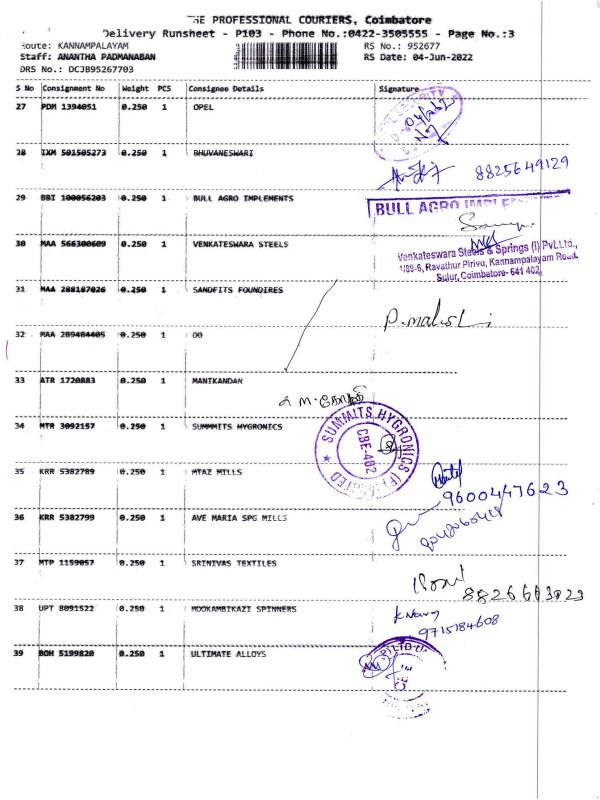 THE PROFESSIONAL COURIERS, Coimbatore
Delivery Runsheet - P103 - Phone No.:0422-3505555 - Page No.:3
Route: KANNAMPALAYAM RS No.: 952677
Staff: ANANTHA PADMANABAN RS Date: 04-Jun-2022
DRS No.: DCJB95267703
S No Consignment No Weight PCS Consignee Details Signature
27 PDM 1394051 0.250 1 OPEL
28 IXM 501505273 0.250 1 BHUVANESWARI
8825649129
29 BBI 100056203 0.250 1 BULL AGRO IMPLEMENTS
BULL AGRO IMPLEMENTS
30 MAA 566300609 0.250 1 VENKATESWARA STEELS
Venkateswara Steels & Springs (I) Pvt.Ltd.,
1/89-6, Ravathur Pirivu, Kannampalayam Road,
Sulur, Coimbatore- 641 402.
31 MAA 288187026 0.250 1 SANDFITS FOUNDIRES
32 MAA 289484405 0.250 1 DO
33 ATR 1720883 0.250 1 MANIKANDAN
34 MTR 3092157 0.250 1 SUMMMITS HYGRONICS
SUMMITS HYGRONICS (P) LIMITED
CBE-402
35 KRR 5382789 0.250 1 MTAZ MILLS
9600447623
36 KRR 5382799 0.250 1 AVE MARIA SPG MILLS
37 MTP 1159057 0.250 1 SRINIVAS TEXTILES
38 UPT 8091522 0.250 1 MOOKAMBIKAZI SPINNERS
9715184608
39 BOH 5199820 0.250 1 ULTIMATE ALLOYS